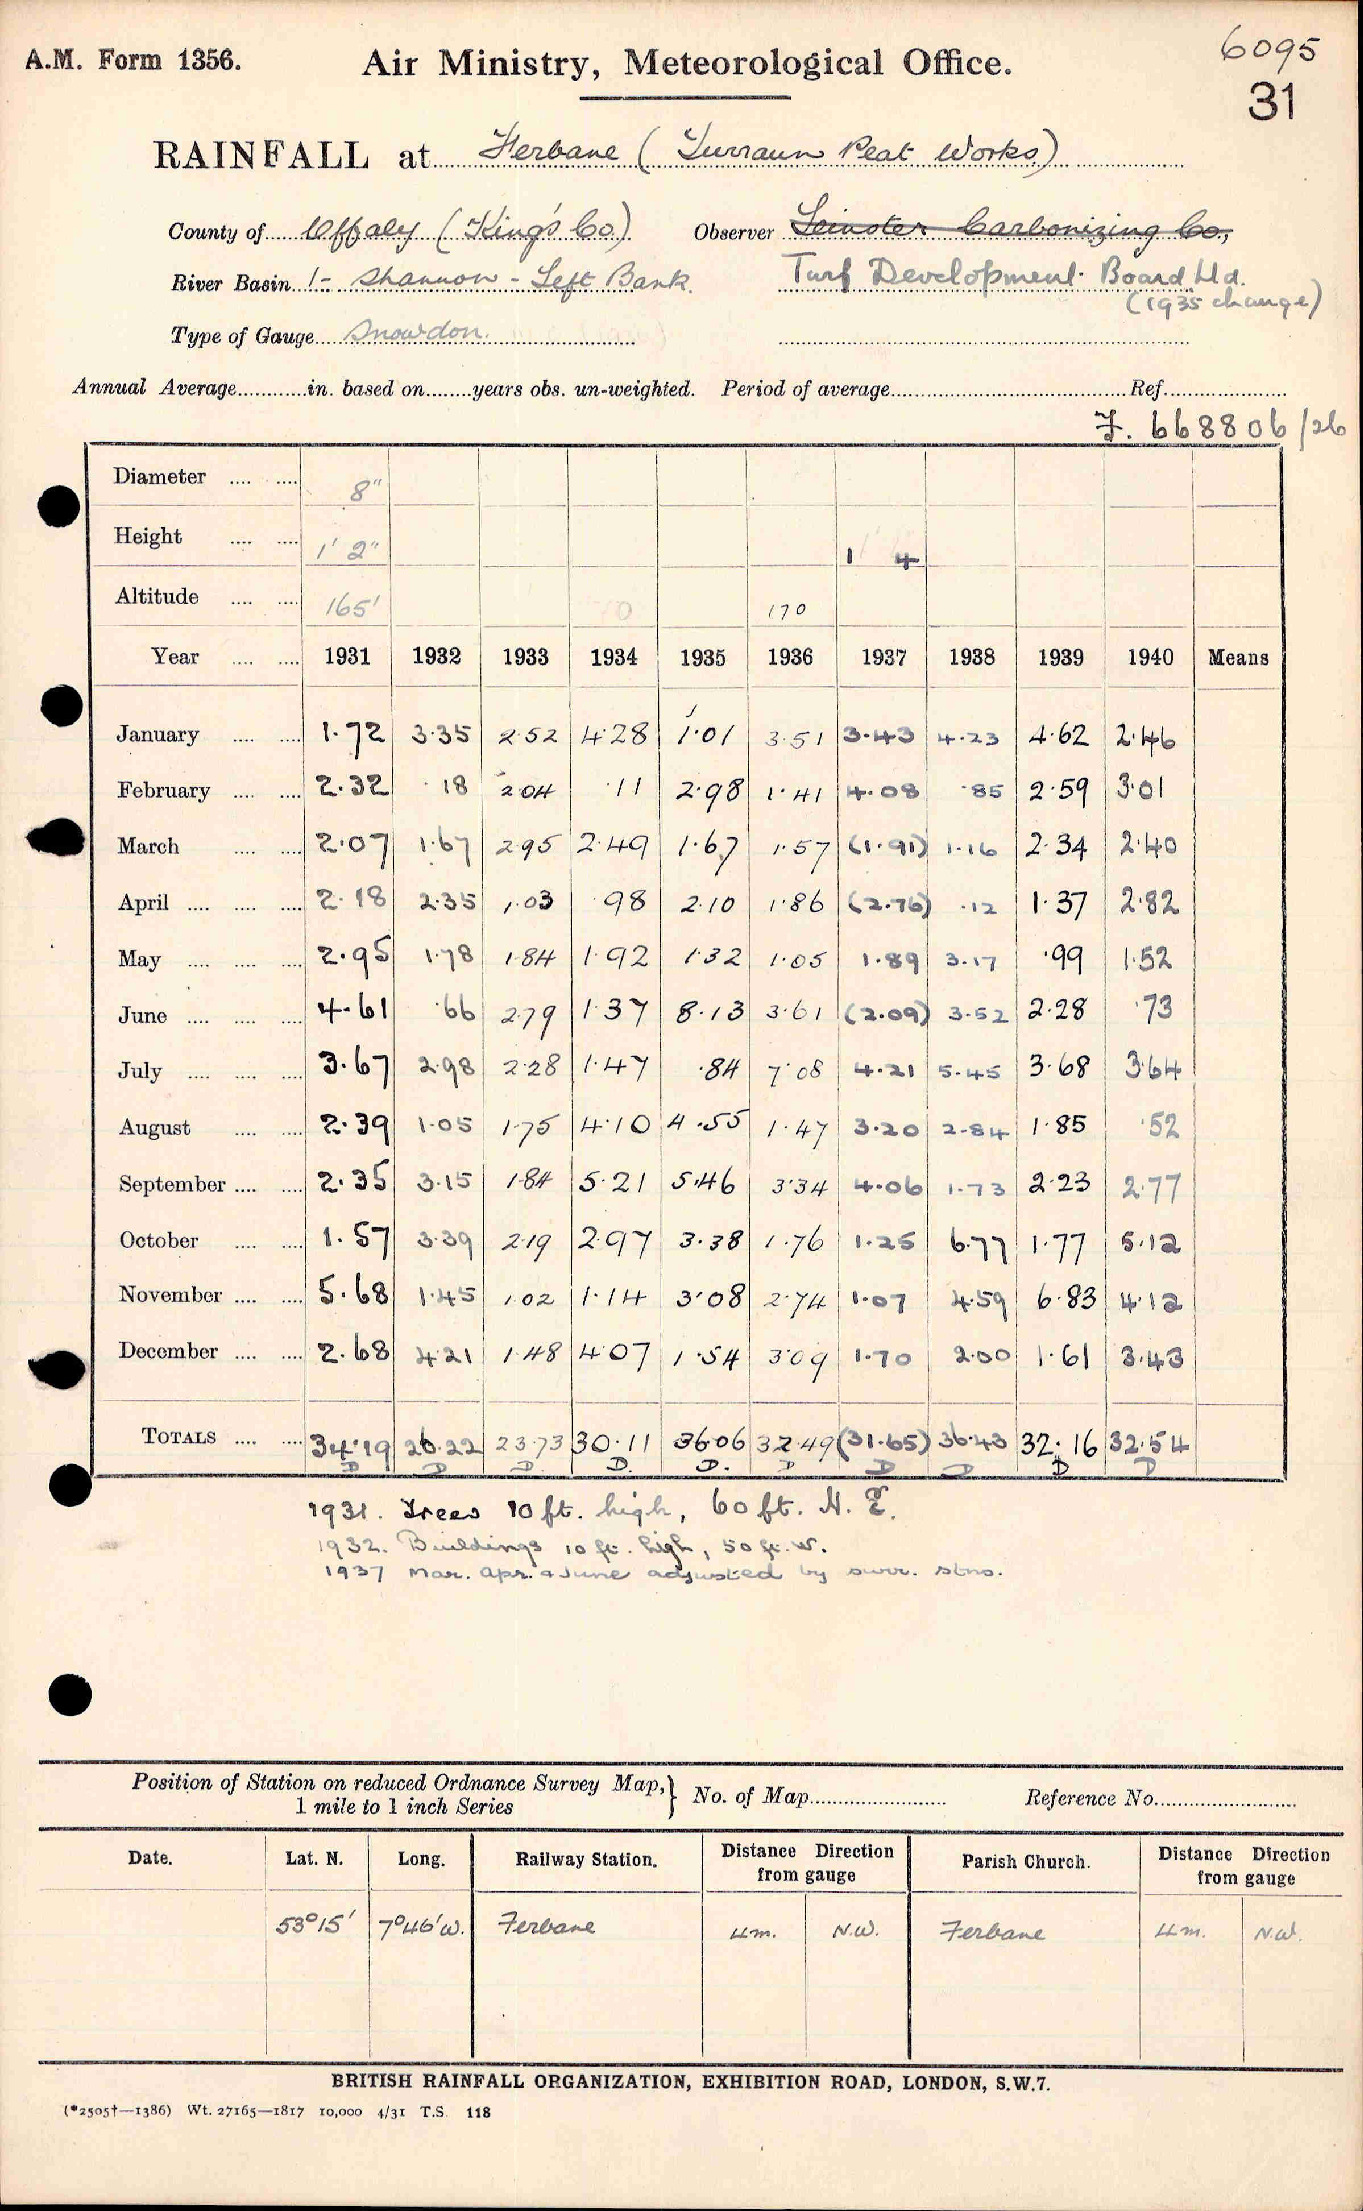 A.M. Form 1356.
Air Ministry, Meteorological Office.
6095
31
RAINFALL at Ferbane (Turraun Peat Works)
County of Offaly (King's Co.) Observer Leinster Carbonizing Co.,
River Basin 1- Shannon - Left Bank. Turf Development Board Ltd.
(1935 change)
Type of Gauge Snowdon.
Annual Average in. based on years obs. un-weighted. Period of average Ref.
F. 668806/26
Diameter 8"
Height 1' 2" 1 4
Altitude 165' 170
Year 1931 1932 1933 1934 1935 1936 1937 1938 1939 1940 Means
January 1.72 3.35 2.52 4.28 1.01 3.51 3.43 4.23 4.62 2.46
February 2.32 .18 2.04 .11 2.98 1.41 4.08 .85 2.59 3.01
March 2.07 1.67 2.95 2.49 1.67 1.57 (1.91) 1.16 2.34 2.40
April 2.18 2.35 1.03 .98 2.10 1.86 (2.76) .12 1.37 2.82
May 2.95 1.78 1.84 1.92 1.32 1.05 1.89 3.17 .99 1.52
June 4.61 .66 2.79 1.37 8.13 3.61 (2.09) 3.52 2.28 .73
July 3.67 2.98 2.28 1.47 .84 7.08 4.21 5.45 3.68 3.64
August 2.39 1.05 1.75 4.10 4.55 1.47 3.20 2.84 1.85 .52
September 2.35 3.15 1.84 5.21 5.46 3.34 4.06 1.73 2.23 2.77
October 1.57 3.39 2.19 2.97 3.38 1.76 1.25 6.77 1.77 5.12
November 5.68 1.45 1.02 1.14 3.08 2.74 1.07 4.59 6.83 4.12
December 2.68 4.21 1.48 4.07 1.54 3.09 1.70 2.00 1.61 3.43
TOTALS 34.19 26.22 23.73 30.11 36.06 32.49 (31.65) 36.43 32.16 32.54
D D D. D. D. D D D D D
1931. Trees 10 ft. high, 60 ft. N.E.
1932. Buildings 10 ft. high, 50 ft. W.
1937 Mar. Apr. & June adjusted by surr. stns.
Position of Station on reduced Ordnance Survey Map, 1 mile to 1 inch Series } No. of Map Reference No.
Date. Lat. N. Long. Railway Station. Distance Direction from gauge Parish Church. Distance Direction from gauge
53°15' 7°46'W. Ferbane 4m. N.W. Ferbane 4m. N.W.
BRITISH RAINFALL ORGANIZATION, EXHIBITION ROAD, LONDON, S.W.7.
(*2505†—1386) Wt. 27165—1817 10,000 4/31 T.S. 118